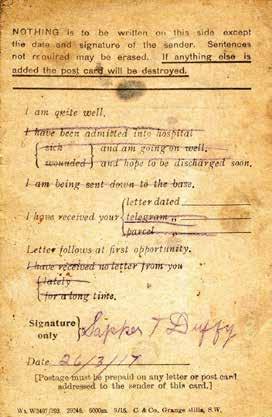 NOTHING is to be written on this side except
the date and signature of the sender. Sentences
not required may be erased. If anything else is
added the post card will be destroyed.
I am quite well.
I have been admitted into hospital
sick and am going on well.
wounded and hope to be discharged soon.
I am being sent down to the base.
letter dated
I have received your telegram ,,
parcel ,,
Letter follows at first opportunity.
I have received no letter from you
lately
for a long time.
Signature only Sapper T Duffy
Date 26/3/17
[Postage must be prepaid on any letter or post card
addressed to the sender of this card.]
C. & Co. Grange Mills, S.W.